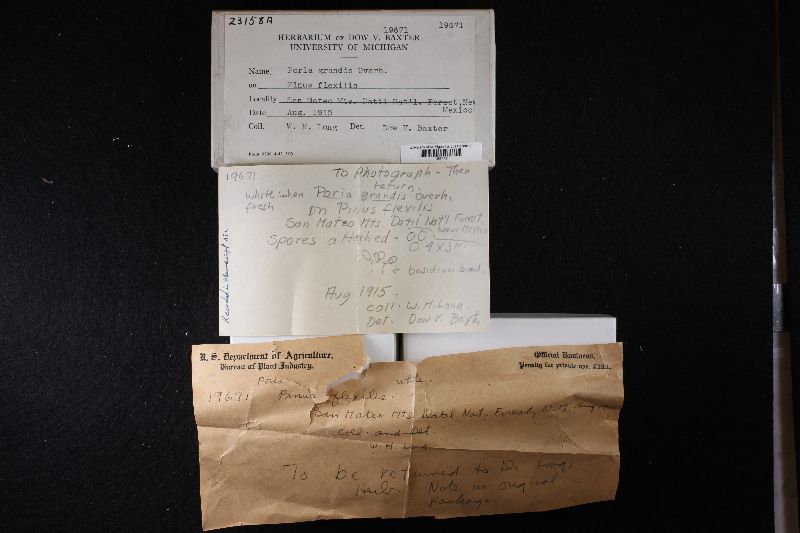 23158A
19671
19671
HERBARIUM OF DOW V. BAXTER
UNIVERSITY OF MICHIGAN
Name Poria grandis Overh.
on Pinus flexilis
Locality San Mateo Mts. Datil Nat'l. Forest, New Mexico
Date Aug. 1915
Coll. W. H. Long Det. Dow V. Baxter
19671
To Photograph - Then return.
white when fresh
Poria grandis Overh,
on Pinus flexilis
San Mateo Mts. Datil Nat'l Forest
New Mexico
Spores attached -
4 x 3
basidium
Aug 1915.
Coll. W. H. Long
Det. Dow V. Baxt.
Recorded in Manuscript
U. S. Department of Agriculture,
Bureau of Plant Industry.
Official Business.
Penalty for private use, $300.
Poria white.
19671 Pinus flexilis.
San Mateo Mts Datil Nat. Forest, N.M. Aug
coll. and Det.
W. H. Long
To be returned to Dr. Longs
Herb. Note on original
package.